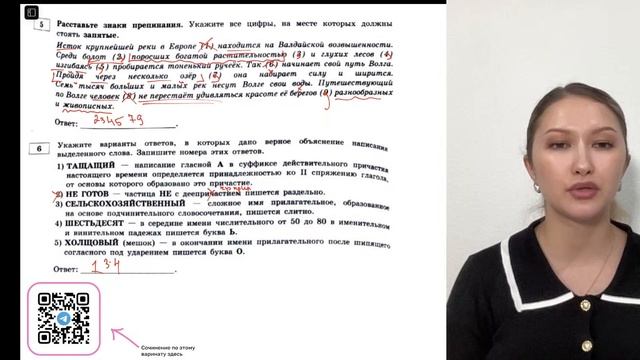 5 Расставьте знаки препинания. Укажите все цифры, на месте которых должны
стоять запятые.
Исток крупнейшей реки в Европе (1) находится на Валдайской возвышенности.
Среди болот (2) поросших богатой растительностью (3) и глухих лесов (4)
извиваясь (5) пробирается тоненький ручеёк. Так (6) начинает свой путь Волга.
Пройдя через несколько озёр (7) она набирает силу и ширится.
Семь тысяч больших и малых рек несут Волге свои воды. Путешествующий
по Волге человек (8) не перестаёт удивляться красоте её берегов (9) разнообразных
и живописных.
Ответ: 234579.
6 Укажите варианты ответов, в которых дано верное объяснение написания
выделенного слова. Запишите номера этих ответов.
1) ТАЩАЩИЙ — написание гласной А в суффиксе действительного причастия
настоящего времени определяется принадлежностью ко II спряжению глагола,
от основы которого образовано это причастие.
2) НЕ ГОТОВ — частица НЕ с деепричастием пишется раздельно.
3) СЕЛЬСКОХОЗЯЙСТВЕННЫЙ — сложное имя прилагательное, образованное
на основе подчинительного словосочетания, пишется слитно.
4) ШЕСТЬДЕСЯТ — в середине имени числительного от 50 до 80 в именительном
и винительном падежах пишется буква Ь.
5) ХОЛЩОВЫЙ (мешок) — в окончании имени прилагательного после шипящего
согласного под ударением пишется буква О.
Ответ: 1 3 4.
Сочинение по этому
варинату здесь